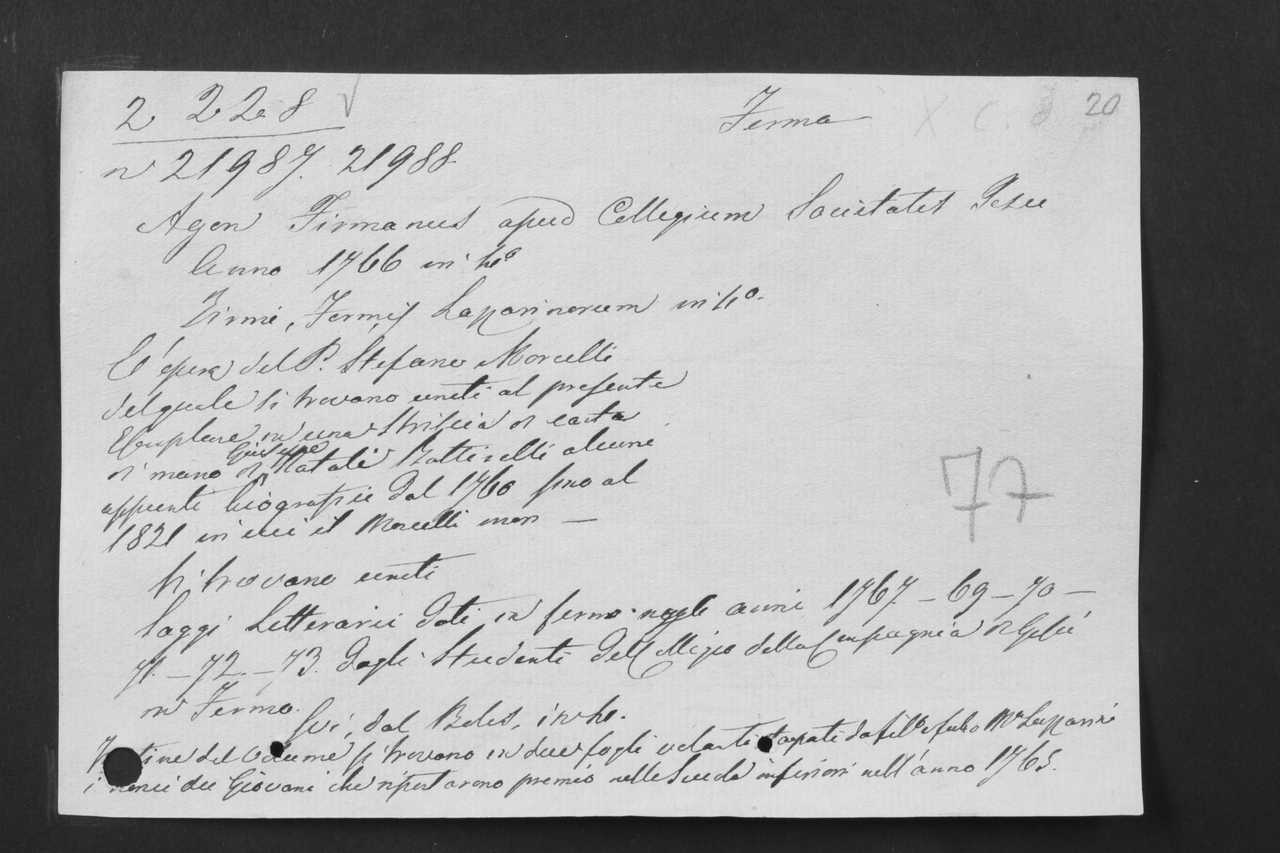 2 228
Fermo
X C. 20
n 21987. 21988.
Agon Firmanus apud Collegium Societatis Jesu
Anno 1766 in 4º
Firmi, Lazarinorum in 4º.
È opera del P. Stefano Morcelli
del quale si trovano uniti al presente
Esemplare in una striscia di carta
di mano di Giuseppe Natali alcuni
appunti biografici dal 1760 fino al
1821 in cui il Morcelli morì —
Si trovano uniti
Saggi Letterarii dati in fermo negli anni 1767 – 69 – 70 –
71. – 72. – 73. dagli Studenti del Collegio della Compagnia di Gesù
in Fermo.
Ivi, dal in 4o.
77
fine del Volume si trovano in due fogli volanti
i nomi dei Giovani che riportarono premio nelle Scuole inferiori nell'anno 1765.